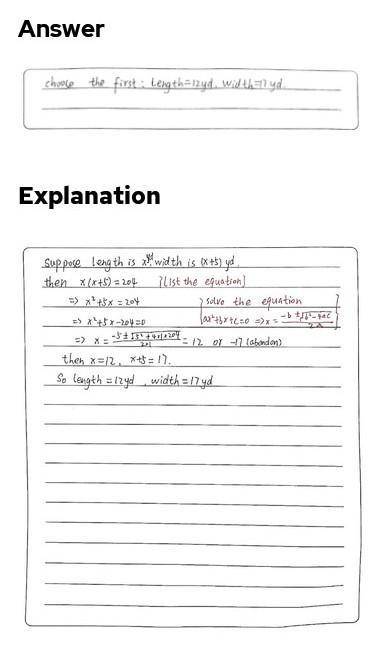 Answer
choose the first: Length=12yd, width=17yd.
Explanation
Suppose length is x yd, width is (x+5) yd.
then x(x+5)=204 {List the equation}
=> x²+5x=204 } solve the equation }
=> x²+5x-204=0 {ax²+bx+c=0 => x = (-b±√(b²-4ac))/(2a)
=> x = (-5±√(5²+4×1×204))/(2×1) = 12 or -17 (abandon)
then x=12, x+5=17.
So length=12yd, width=17yd